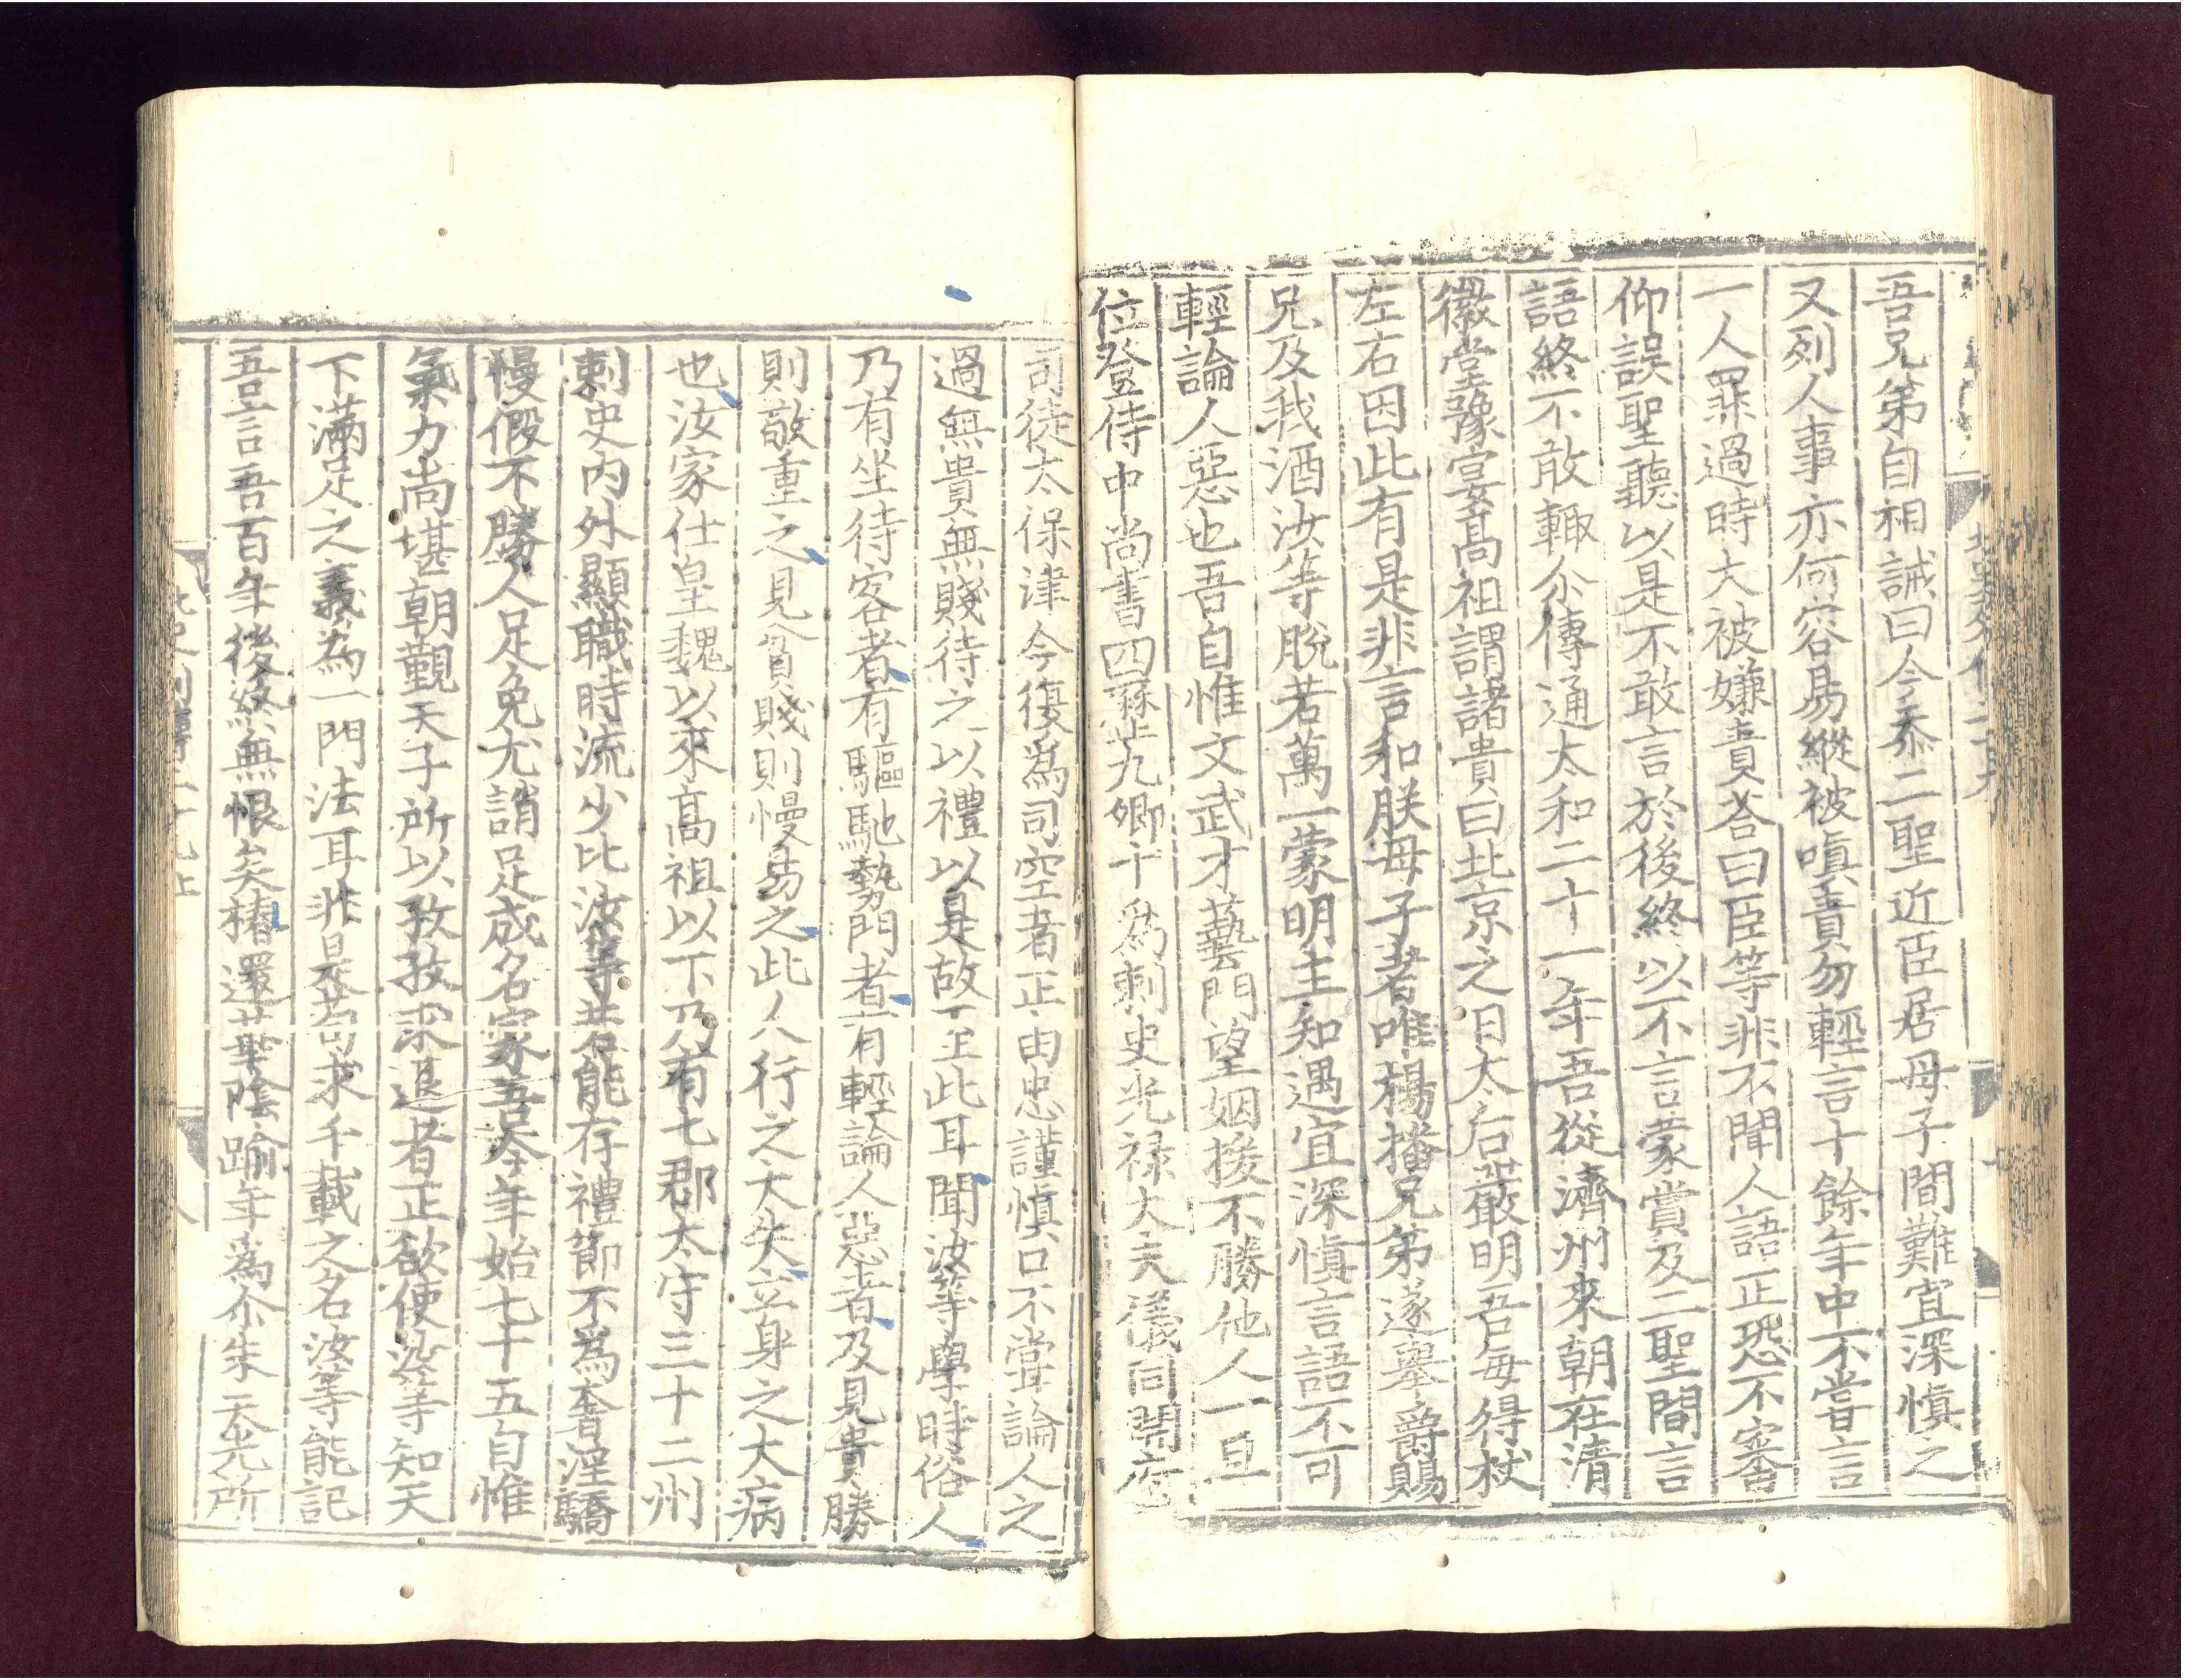 吾兄弟自相誡曰今忝二聖近臣居母子間難宜深慎之
又列人事亦何容易縱被嗔責勿輕言十餘年中不嘗言
一人罪過時大被嫌責荅曰臣等非不聞人語正恐不審
仰誤聖聽以是不敢言於後終以不言蒙賞及二聖間言
語終不敢輙尒傳通太和二十一年吾從濟州來朝在清
徽堂豫宴高祖謂諸貴曰北京之日太后嚴明吾每得杖
左右因此有是非言和朕母子者唯楊播兄弟遂舉爵賜
兄及我酒汝等脫若萬一蒙明主知遇宜深慎言語不可
輕論人惡也吾自惟文武才藝門望姻援不勝他人一旦
位登侍中尚書四歷九卿十為刺史光祿大夫儀同開府
司徒太保津今復為司空者正由忠謹慎口不嘗論人之
過無貴無賤待之以禮以是故至此耳聞汝等學時俗人
乃有坐待客者有驅馳勢門者有輕論人惡者及見貴勝
則敬重之見貧賤則慢易之此人行之大失立身之大病
也汝家仕皇魏以來高祖以下乃有七郡太守三十二州
刺史內外顯職時流少比汝等若能存禮節不為奢淫驕
慢假不勝人足免尤誚足成名家吾今年始七十五自惟
氣力尚堪朝覲天子所以孜孜求退者正欲使汝等知天
下滿足之義為一門法耳非是苟求千載之名汝等能記
吾言吾百年後終無恨矣椿還華陰踰年為尒朱天光所